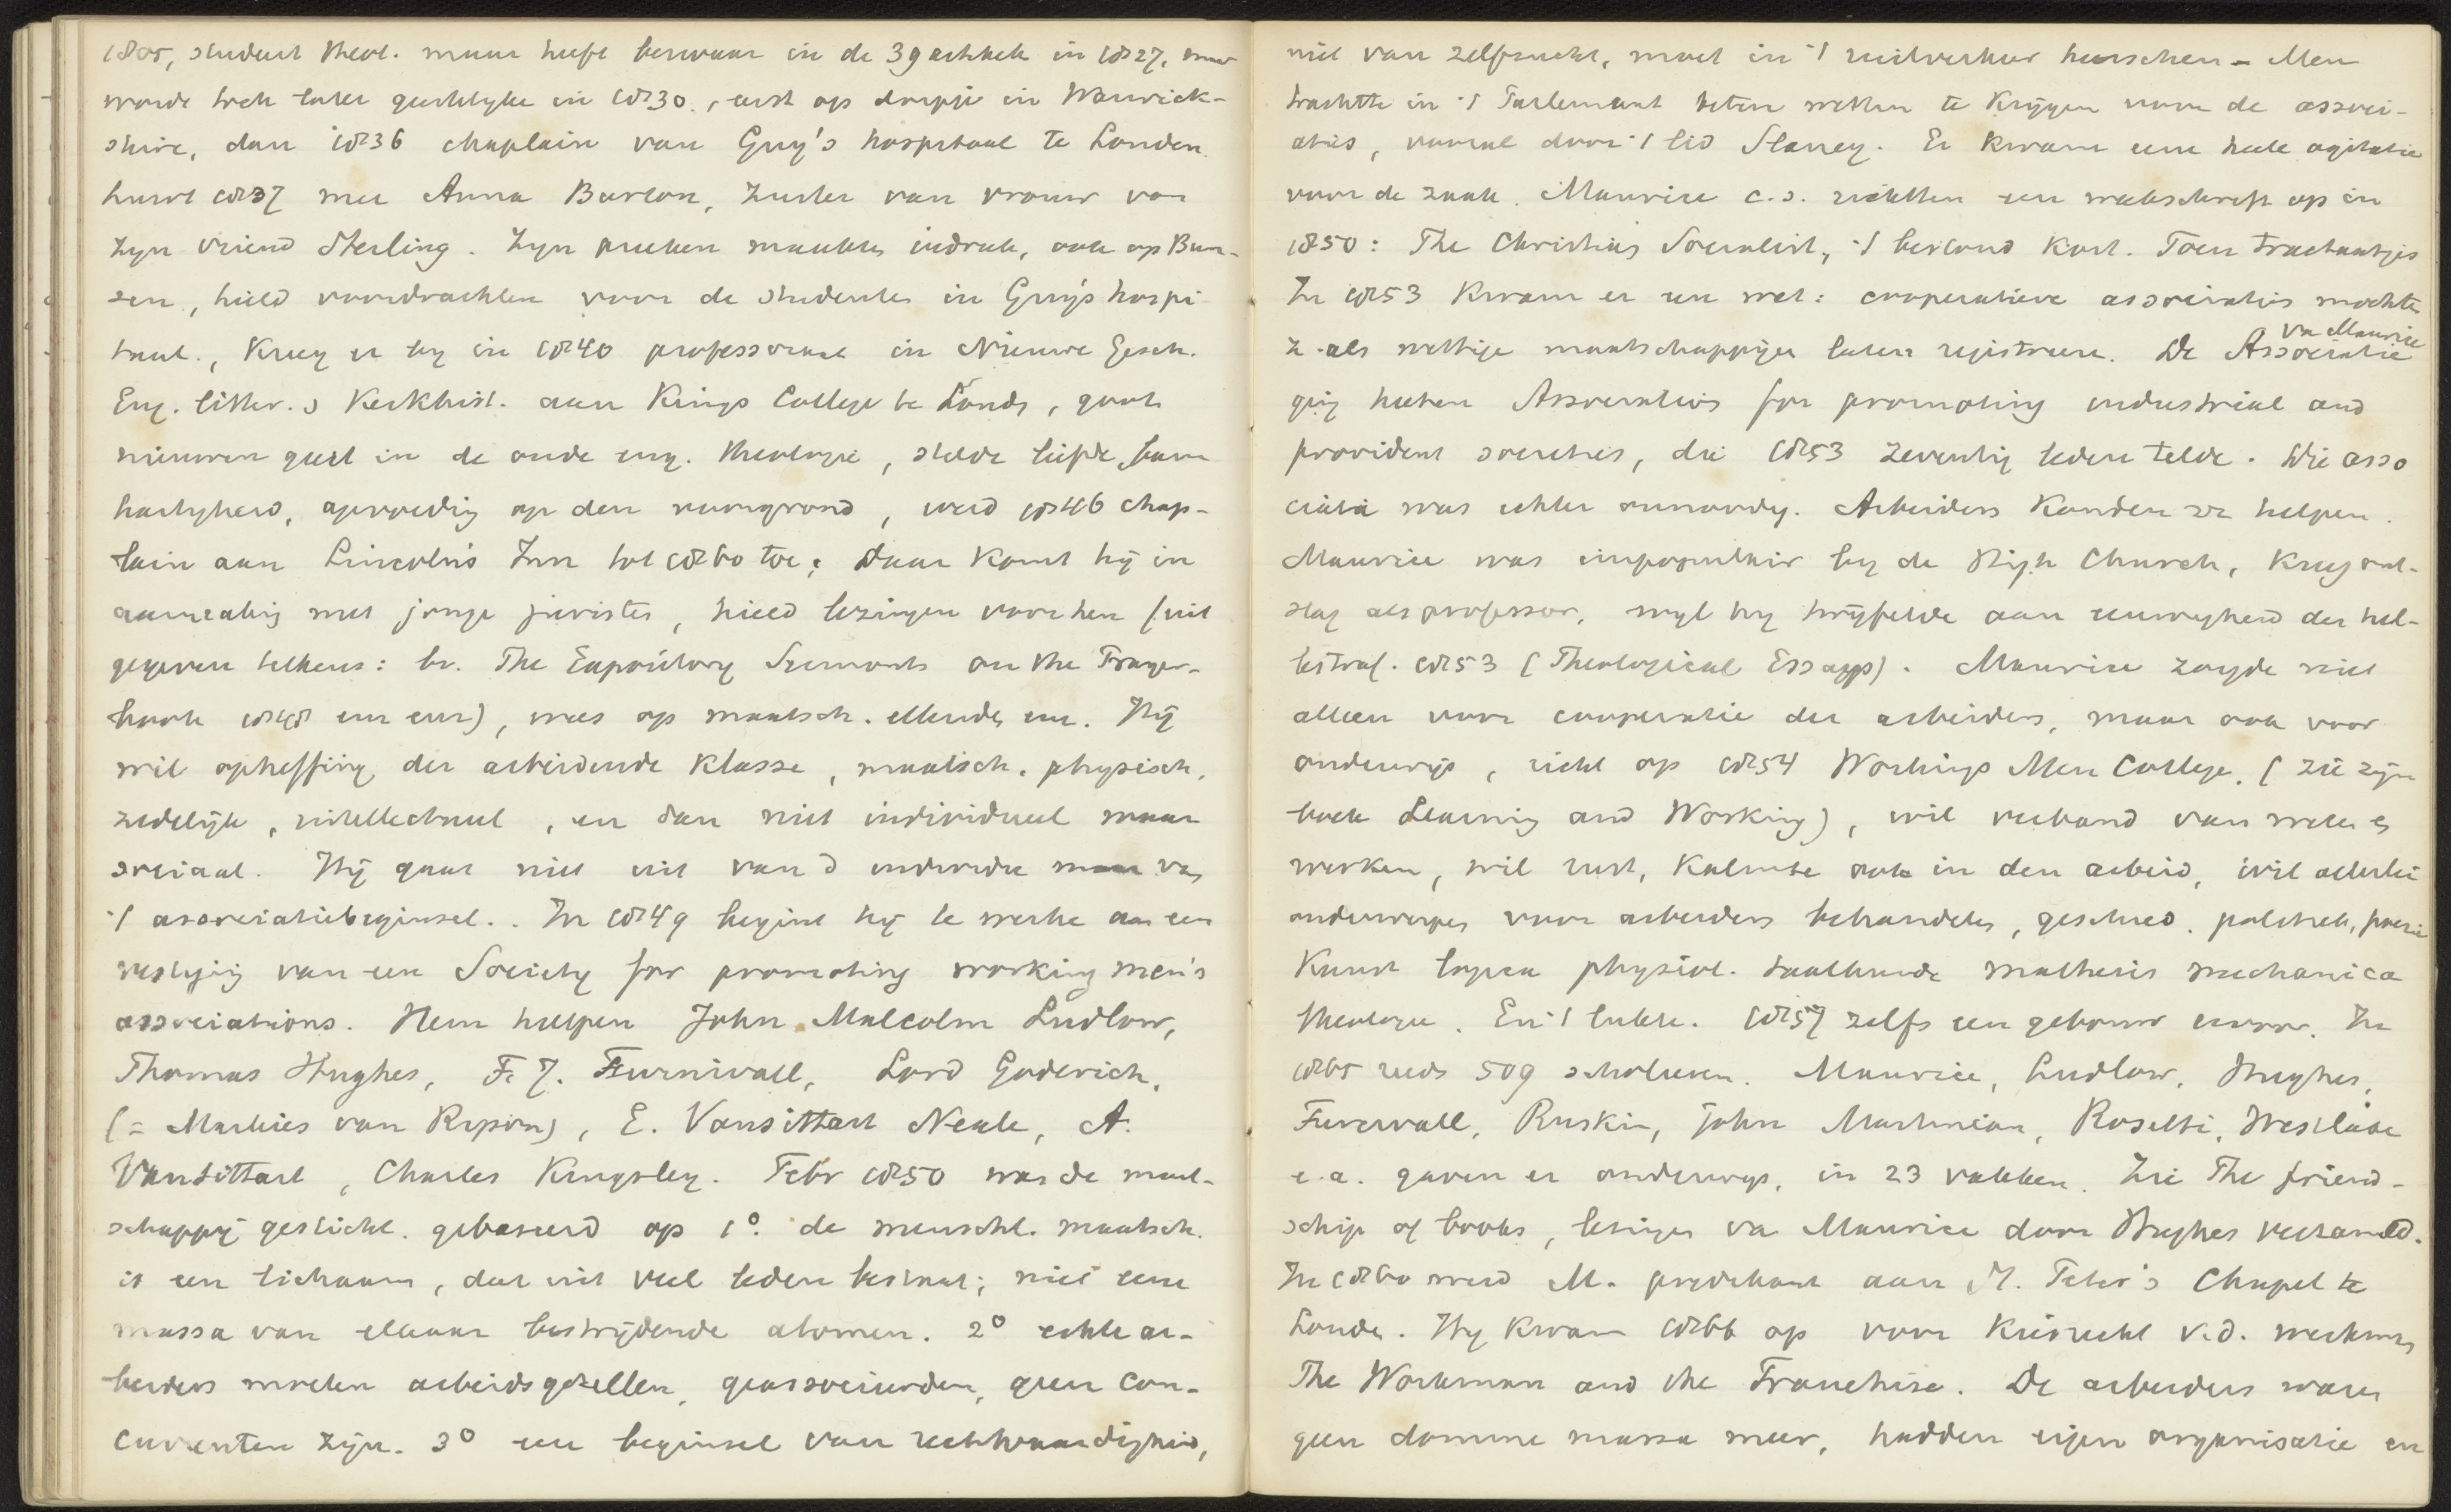 1805, student theol. maar heeft bezwaar in de 39 artikels in 1827, maar
wordt toch later geestelyke in 1830, eerst op dorpje in Warwick-
shire, dan 1836 chaplain van Guy's hospitaal te Londen.
huwt 1837 met Anna Barton, zuster van vrouw van
zyn vriend Sterling. Zyn preeken maakten indruk, ook op Bun-
sen, hield voordrachten voor de studenten in Guy's hospi-
taal., kreeg er by in 1840 professoraat in Nieuwe Gesch.
Eng. litter. & Kerkhist. aan Kings College te Londen, goot
nieuwen geest in de oude eng. theologie, stelde liefde, barm
hartigheid, opvoeding op den voorgrond, werd 1846 chap-
lain aan Lincoln's Inn tot 1860 toe; daar komt hij in
aanraking met jonge juristen, hield lezingen voor hen (uit
gegeven telkens: bv. The Expository Sermonts on the Prayer-
book 1848 enz enz), wees op maatsch. ellenden enz. Hij
wil opheffing der arbeidende klasse, maatsch. physisch,
zedelijk, intellectueel, en dan niet individueel maar
sociaal. Hij gaat niet uit van d individu maar van
't associatiebeginsel.. In 1849 begint hij te werke aan een
vestiging van een Society for promoting working men's
associations. Hem helpen John Malcolm Ludlow,
Thomas Hughes, F. J. Furnivall, Lord Goderich,
(= Markies van Ripon), E. Vansittart Neale, A.
Vansittart, Charles Kingsley. Febr 1850 was de maat-
schappij gesticht. gebaseerd op 1° de menschl. maatsch.
is een lichaam, dat uit veel leden bestaat; niet eene
massa van elkaar bestrijdende atomen. 2° echte ar-
beiders moeten arbeidsgezellen, geassocieerden, geen con-
currenten zijn. 3° een beginsel van rechtvaardigheid,
niet van zelfzucht, moet in 't ruilverkeer heerschen - Men
trachtte in 't Parlement betere wetten te krijgen voor de associ-
aties, vooral door 't lid Slaney. Er kwam eene heele agitatie
voor de zaak. Maurice c.s. richtten een weekschrift op in
1850: The Christian Socialist, 't bestond kort. Toen tractaatjes
In 1853 kwam er een wet: cooperatieve associaties mochten
z. als wettige maatschappijen laten registreeren. De Associatie
va Maurice
ging heeten Association for promoting industrial and
provident societies, die 1853 zeventig leden telde. Die asso
ciatie was echter onnoodig. Arbeiders konden zz helpen.
Maurice was impopulair by de High Church, kreeg ont-
slag als professor, wyl hy twijfelde aan eeuwigheid der hel-
lestraf. 1853 (Theological Essays). Maurice zorgde niet
alleen voor cooperatie der arbeiders, maar ook voor
onderwijs, richt op 1854 Workings Men College, (zie zijn
boek Learning and Working), wil verband van weten &
werken, wil rust, kalmte ook in den arbeid, wil allerlei
onderwerpen voor arbeiders behandelen, geschied. politiek, poezie
kunst logica physiol. taalkunde mathesis mechanica
theologie. En 't lukte. 1857 zelfs een gebouw ervoor. In
1865 reeds 509 scholieren. Maurice, Ludlow, Hughes,
Furnivall, Ruskin, John Martineau, Rosetti, Westlake
e.a. gaven er onderwys, in 23 vakken. Zie The friend-
ship of books, lezingen va Maurice door Hughes verzameld.
In 1860 werd M. predikant aan St. Peter's Chapel te
Londen. Hy kwam 1866 op voor kiesrecht v.d. werkman
The Workman and the Franchise. De arbeiders waren
geen domme massa meer, hadden eigen organisatie en